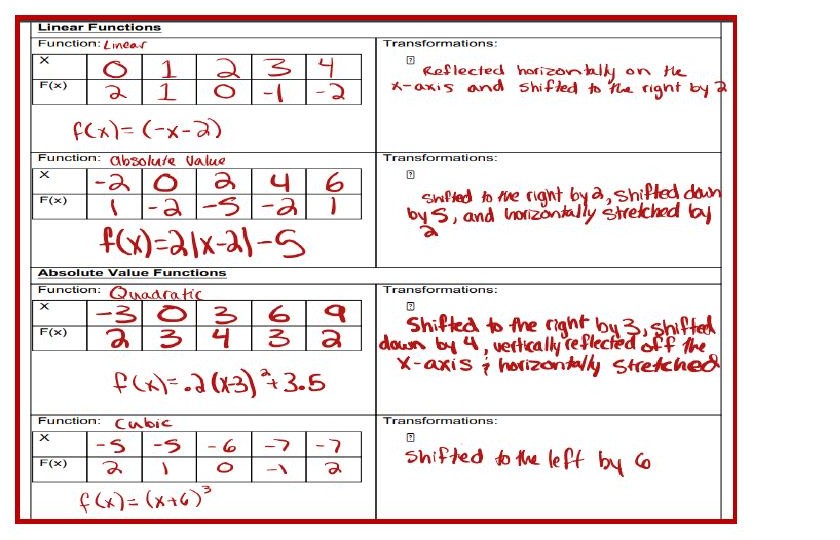 Linear Functions
Function: Linear
X 0 1 2 3 4
F(x) 2 1 0 -1 -2
f(x)= (-x-2)
Transformations:
Reflected horizontally on the
x-axis and shifted to the right by 2
Function: absolute value
X -2 0 2 4 6
F(x) 1 -2 -5 -2 1
f(x)=2|x-2|-5
Transformations:
Shifted to the right by 2, shifted down
by 5, and horizontally stretched by
2
Absolute Value Functions
Function: Quadratic
X -3 0 3 6 9
F(x) 2 3 4 3 2
f(x)= .2(x-3)²+3.5
Transformations:
Shifted to the right by 3, shifted
down by 4, vertically reflected off the
x-axis & horizontally stretched
Function: Cubic
X -5 -5 -6 -7 -7
F(x) 2 1 0 -1 2
f(x)= (x+6)³
Transformations:
Shifted to the left by 6